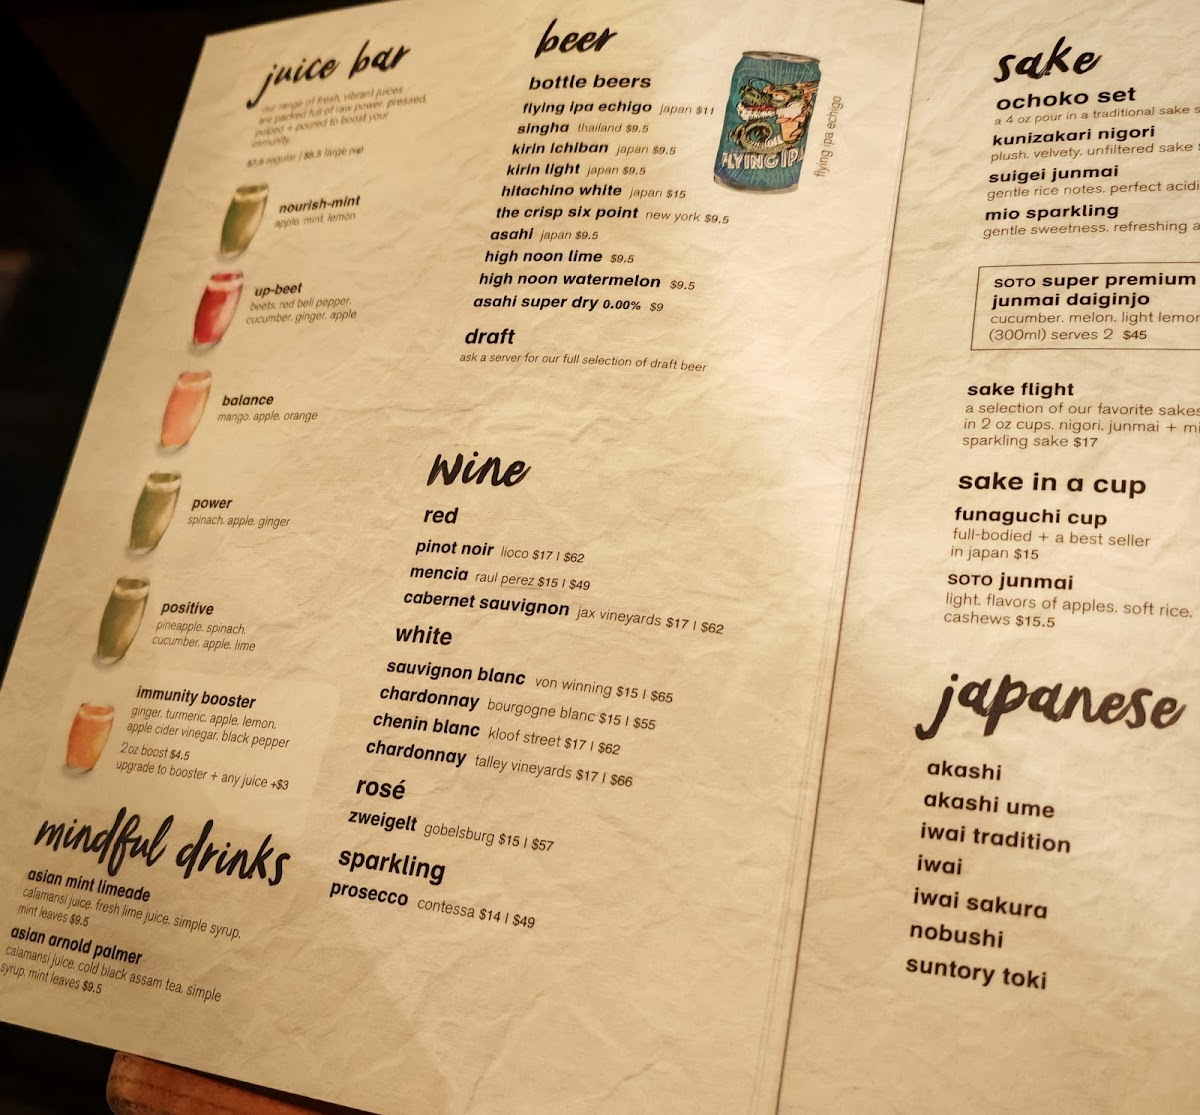 juice bar
our range of fresh, vibrant juices
are packed full of raw power. pressed,
pulped + poured to boost your
immunity.
$7.5 regular | $8.5 large (ve)
nourish-mint
apple. mint. lemon
up-beet
beets. red bell pepper.
cucumber. ginger. apple
balance
mango. apple. orange
power
spinach. apple. ginger
positive
pineapple. spinach.
cucumber. apple. lime
immunity booster
ginger. turmeric. apple. lemon.
apple cider vinegar. black pepper
2oz boost $4.5
upgrade to booster + any juice +$3
mindful drinks
asian mint limeade
calamansi juice. fresh lime juice. simple syrup.
mint leaves $9.5
asian arnold palmer
calamansi juice. cold black assam tea. simple
syrup. mint leaves $9.5
beer
bottle beers
flying ipa echigo japan $11
singha thailand $9.5
kirin ichiban japan $9.5
kirin light japan $9.5
hitachino white japan $15
the crisp six point new york $9.5
asahi japan $9.5
high noon lime $9.5
high noon watermelon $9.5
asahi super dry 0.00% $9
draft
ask a server for our full selection of draft beer
FLYING IPA
flying ipa echigo
wine
red
pinot noir lioco $17 | $62
mencia raul perez $15 | $49
cabernet sauvignon jax vineyards $17 | $62
white
sauvignon blanc von winning $15 | $65
chardonnay bourgogne blanc $15 | $55
chenin blanc kloof street $17 | $62
chardonnay talley vineyards $17 | $66
rosé
zweigelt gobelsburg $15 | $57
sparkling
prosecco contessa $14 | $49
sake
ochoko set
a 4 oz pour in a traditional sake
kunizakari nigori
plush. velvety. unfiltered sake
suigei junmai
gentle rice notes. perfect
mio sparkling
gentle sweetness. refreshing
SOTO super premium
junmai daiginjo
cucumber. melon. light lemon
(300ml) serves 2 $45
sake flight
a selection of our favorite sakes
in 2 oz cups. nigori. junmai +
sparkling sake $17
sake in a cup
funaguchi cup
full-bodied + a best seller
in japan $15
SOTO junmai
light. flavors of apples. soft rice.
cashews $15.5
japanese
akashi
akashi ume
iwai tradition
iwai
iwai sakura
nobushi
suntory toki